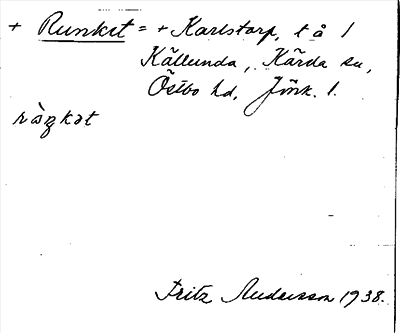 + Runket = + Karlstorp, t å 1
Källunda, Kärda sn,
Östbo hd, Jönk. l.
Fritz Andersson 1938.